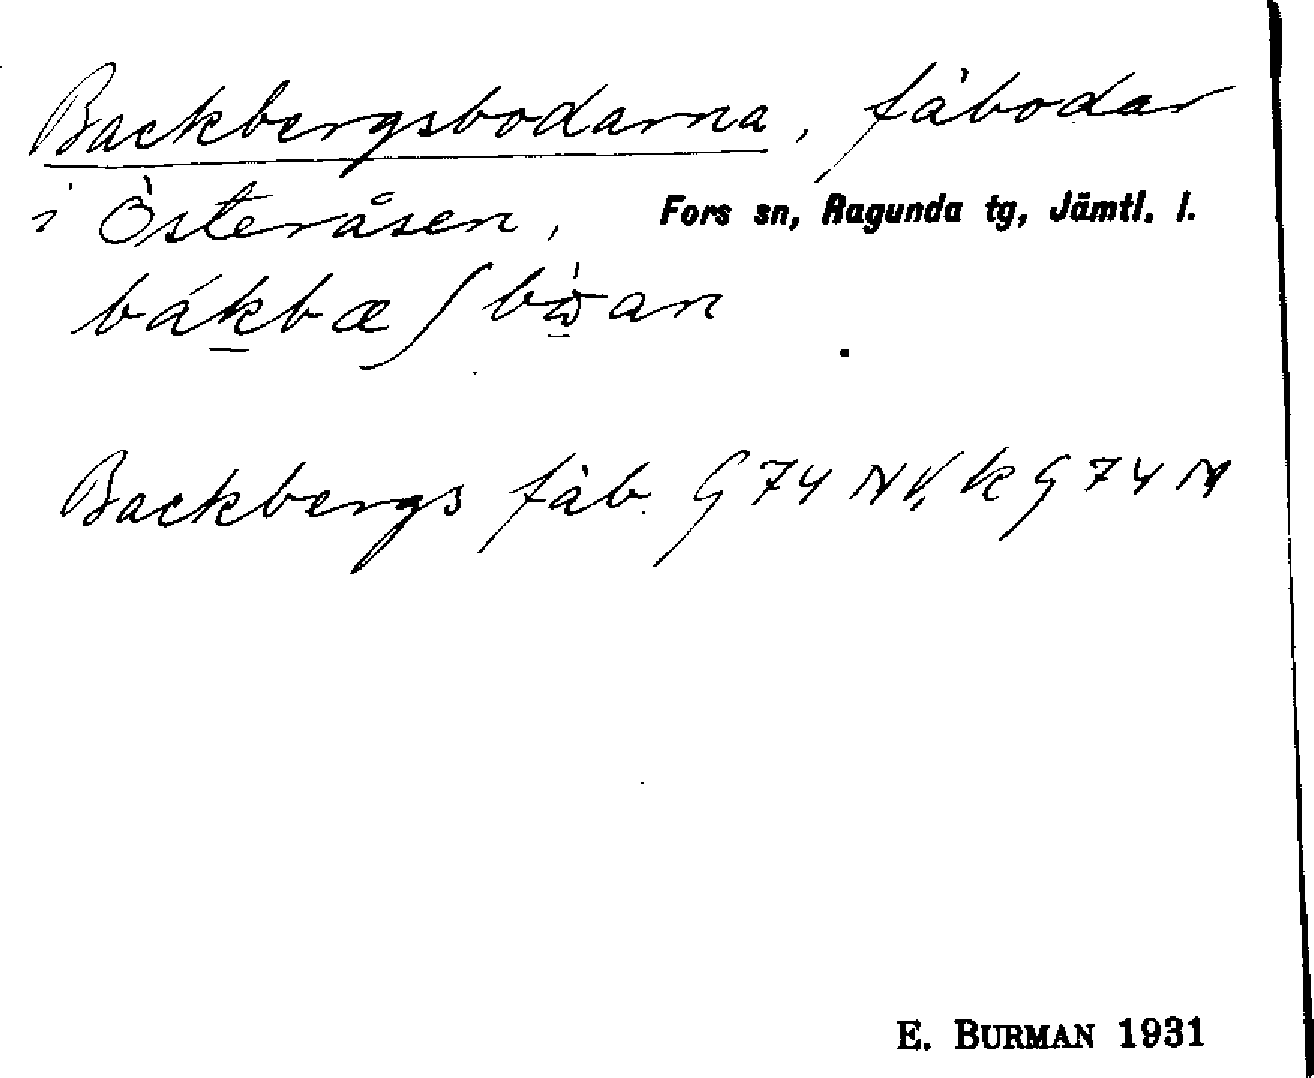 Backbergsbodarna, fäbodar
i Österåsen, Fors sn, Ragunda tg, Jämtl. l.
Backbergs fäb. G 74 NV, k G 74 N
E. BURMAN 1931